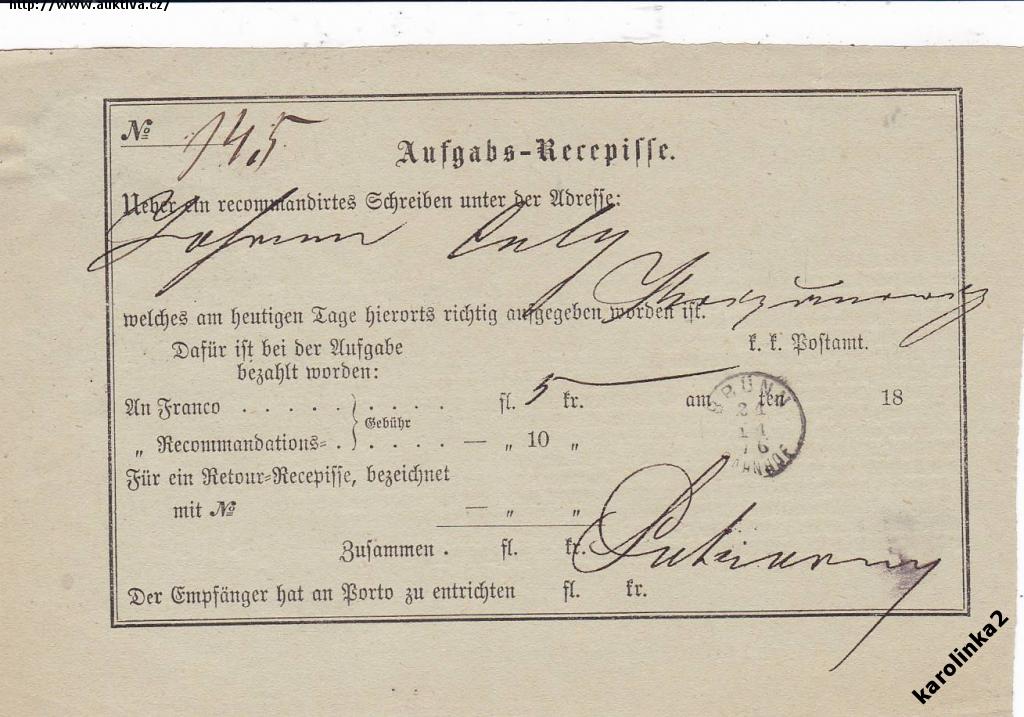 http://www.auktiva.cz/
№ 145
Aufgabs-Recepisse.
Ueber ein recommandirtes Schreiben unter der Adresse:
Johann
welches am heutigen Tage hierorts richtig aufgegeben worden ist.
Dafür ist bei der Aufgabe k. k. Postamt.
bezahlt worden:
An Franco . . . . . . . . . fl. 5 kr. am ten 18
Gebühr
„ Recommandations= . . . . . — „ 10 „
BRÜNN
BAHNHOF
Für ein Retour=Recepisse, bezeichnet
mit № — „ „
Zusammen . fl. kr.
Der Empfänger hat an Porto zu entrichten fl. kr.
karolinka2